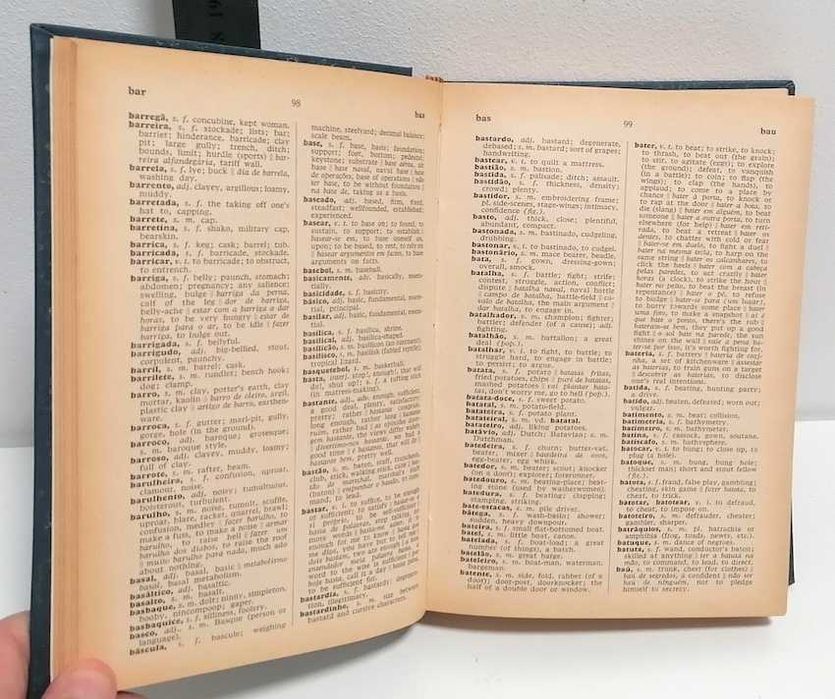 bar
98
bas
barregã, s. f. concubine, kept woman.
barreira, s. f. stockade; lists; bar;
barrier; hinderance, barricade; clay
pit; large gully; trench, ditch;
bounds, limit; hurdle (sports) ‖ bar-
reira alfandegária, tariff wall.
barrela, s. f. lye; buck ‖ dia de barrela,
washing day.
barrento, adj. clayey, argillous; loamy,
muddy.
barretada, s. f. the taking off one's
hat to, capping.
barrete, s. m. cap.
barretina, s. f. shako, military cap,
bearskin.
barrica, s. f. keg; cask; barrel; tub.
barricada, s. f. barricade, stockade.
barricar, v. t. to barricade; to obstruct,
to entrench.
barriga, s. f. belly; paunch, stomach;
abdomen; pregnancy; any salience;
swelling, bulge ‖ barriga da perna,
calf of the leg ‖ dor de barriga,
belly-ache ‖ estar com a barriga a dar
horas, to be very hungry ‖ estar de
barriga para o ar, to be idle ‖ fazer
barriga, to bulge out.
barrigada, s. f. bellyful.
barrigudo, adj. big-bellied, stout,
corpulent, paunchy.
barril, s. m. barrel; cask.
barrilete, s. m. rundlet; bench hook;
dog; clamp.
barro, s. m. clay, potter's earth, clay
mortar, kaolin ‖ barro de oleiro, argil,
plastic clay ‖ artigo de barro, earthen-
ware.
barroca, s. f. gutter; marl-pit, gully,
gorge, hole (in the ground).
barroco, adj. baroque; grotesque;
s. m. baroque style.
barroso, adj. clayey, muddy, loamy;
full of clay.
barrote, s. m. rafter, beam.
barulheira, s. f. confusion, uproar,
clamour,
barulhento, adj. noisy; tumultuous,
boisterous, turbulent.
barulho, s. m. noise, tumult, scuffle,
uproar, blare, racket; quarrel, brawl;
confusion, medley ‖ fazer barulho, to
make a fuss, to make a noise ‖ armar
barulho, to raise hell ‖ fazer um
barulho dos diabos, to raise the roof
‖ muito barulho para nada, much ado
about nothing.
basal, adj. basal, basic ‖ metabolismo
basal, basal metabolism.
basáltico, adj. basaltic.
basalto, s. m. basalt.
basbaque, s. m. dolt; ninny, simpleton,
booby, nincompoop; gaper.
basbaquice, s. f. silliness, foolery.
basco, adj., s. m. Basque (person or
language).
báscula, s. f. bascule; weighing
machine, steelyard; decimal balance;
scale beam.
base, s. f. base, basis; foundation;
support; foot, bottom; pedestal;
keystone; substrate ‖ base aérea, air
base ‖ base naval, naval base ‖ base
de operações, base of operations ‖ não
ter base, to be without foundations ‖
na base de, taking as a basis.
baseado, adj. based, firm, fixed,
steadfast; wellfounded, established;
experienced.
basear, v. t. to base on; to found; to
sustain, to support; to establish ‖
basear-se em, to base oneself on,
upon; to be based, to rest, to rely on
‖ basear argumentos em factos, to base
arguments on facts.
basebol, s. m. baseball.
basicamente, adv. basically, essen-
tially.
basicidade, s. f. basicity.
básico, adj. basic, fundamental, essen-
tial, principal.
basilar, adj. basic, fundamental, essen-
tial.
basílica, s. f. basilica, shrine.
basilical, adj. basilica-shaped.
basilicão, s. m. basilicon (an ointment).
basilisco, s. m. basilisk (fabled reptile);
tropical lizard.
basquetebol, s. m. basketball.
basta, interj. stop!, enough!, that will
do!, shut up!; s. f. a tufting
(in mattress-making).
bastante, adj., adv. enough, sufficient,
a good deal, plenty, satisfactory,
pretty; rather ‖ bastante comprido,
long enough, rather long ‖ bastante
ruim, rather bad
bastante bem, pretty well.
bastão, s. m. baton, staff, truncheon,
club, stick, walking stick, cane ‖ bas-
tão de marechal, marshal's staff
(baton)
mand, to lead.
bastar, v. i. to suffice, to be enough
or sufficient; to satisfy
bastardia, s. f. bastardy; degenera-
tion, illegitimacy.
bastardinho, s. m. size between
bastard and cursive characters.
bas
99
bau
bastardo, adj. bastard; degenerate,
debased; s. m. bastard; sort of grapes;
handwriting.
bastear, v. t. to quilt a mattress.
bastião, s. m. bastion.
bastida, s. f. palisade; ditch; assault.
bastidão, s. f. thickness, density;
crowd; plenty.
bastidor, s. m. embroidering frame;
pl. side-scenes, stage-wings; intimacy,
confidence (fig.).
basto, adj. thick, close; plentiful,
abundant, compact.
bastonada, s. m. bastinado, cudgeling,
drubbing.
bastonar, v. t. to bastinado, to cudgel.
bastonário, s. m. mace bearer, beadle.
bata, s. f. gown, dressing-gown;
overall, smock.
batalha, s. f. battle; fight; strife;
contest, struggle, action, conflict;
dispute ‖ batalha naval, naval battle
‖ campo de batalha, battle-field ‖ ca-
valo de batalha, the main argument ‖
dar batalha, to engage in.
batalhador, s. m. champion; fighter;
battler; defender (of a cause); adj.
fighting.
batalhão, s. m. battalion; a great
deal (pop.).
batalhar, v. i. to fight, to battle; to
struggle hard, to engage in battle;
to persist; to argue.
batata, s. f. potato ‖ batatas fritas,
fried potatoes, chips ‖ puré de batatas,
smashed potatoes ‖ vai plantar bata-
tas, don't worry me, go to hell (pop.).
batata-doce, s. f. sweet potato.
batatal, s. m. potato-field.
batateira, s. f. potato plant.
batateiral, s. m. vd. batatal.
batateiro, adj. liking potatoes.
batávio, adj. Dutch; Batavian; s. m.
Dutchman.
batedeira, s. f. churn; butter-vat,
beater; mixer ‖ batedeira de ovos,
egg-beater, egg whisk.
batedor, s. m. beater; scout; knocker
(on a door); explorer; forerunner.
batedouro, s. m. beating-place; beat-
ing stone (used by washerwomen).
batedura, s. f. beating; clapping;
stamping, striking.
bate-estacas, s. m. pile driver.
bátega, s. f. wash-basin; shower;
sudden, heavy downpour.
bateira, s. f. small flat-bottomed boat.
batel, s. m. little boat, canoe.
batelada, s. f. boat-load; a great
number (of things), a batch.
batelão, s. m. great barge.
bateleiro, s. m. boat-man, waterman,
bargeman.
batente, s. m. side, fold, rabbet (of a
door); door-post, doorknocker; the
half of a double door or window.
bater, v. t. to beat; to strike, to knock;
to thrash, to beat out (the grain);
to stir, to agitate (egg); to explore
(the ground); defeat, to vanquish
(in a battle); to coin; to flap (the
wings); to clap (the hands), to
applaud; to come to a place by
chance ‖ bater à porta, to knock or
to rap at the door ‖ bater a bota, to
die (slang) ‖ bater em alguém, to beat
someone ‖ bater a outra porta, to turn
elsewhere (for help) ‖ bater em reti-
rada, to beat a retreat ‖ bater os
dentes, to chatter with cold or fear
‖ bater-se em duelo, to fight a duel ‖
bater na mesma tecla, to harp on the
same string ‖ bater os calcanhares, to
click the heels ‖ bater com a cabeça
pelas paredes, to act crazily ‖ bater
horas (a clock), to strike the hour ‖
bater no peito, to beat the breast (in
repentance) ‖ bater o pé, to refuse
to budge ‖
to hurry towards some place ‖ bater
uma foto, to make a snapshot ‖ aí é
que bate o ponto, there's the rub ‖
bateram-se bem, they put up a good
fight ‖ o sol bate na parede, the sun
shines on the wall ‖ vale a pena ba-
ter-se por isso, it's worth fighting for.
bateria, s. f. battery ‖ bateria de cozi-
nha, a set of kitchenware ‖ assestar
as baterias, to train guns on a target
‖ descobrir as baterias, to disclose
one's real intentions.
batida, s. f. beating, hunting party;
a drive.
batido, adj. beaten, defeated; worn out;
vulgar.
batimento, s. m. beat; collision.
batimetria, s. f. bathymetry.
batímetro, s. m. bathymeter.
batina, s. f. cassock, gown, soutane.
batiscafo, s. m. bathysphere.
batocar, v. t. to bung; to close up, to
plug (a hole).
batoque, s. m. bung, bung hole;
thickset man; short and stout fellow
(fig.).
batota, s. f. fraud, false play, gambling;
cheating, skin game ‖ fazer batota, to
cheat, to trick.
batotar, batotear, v. i. to defraud,
to cheat, to impose on.
batoteiro, s. m. defrauder, cheater;
gambler; sharper.
batráquios, s. m. pl. batrachia or
amphibia (frog, toads, newts, etc.).
batuque, s. m. dance of negroes.
batuta, s. f. wand, conductor's baton;
skilled at anything ‖ ter a batuta na
mão, to command, to lead, to direct.
baú, s. m. trunk, chest (for clothes) ‖
baú de segredos, a confident ‖ não ser
baú de ninguém, not to pledge
himself to secrecy.